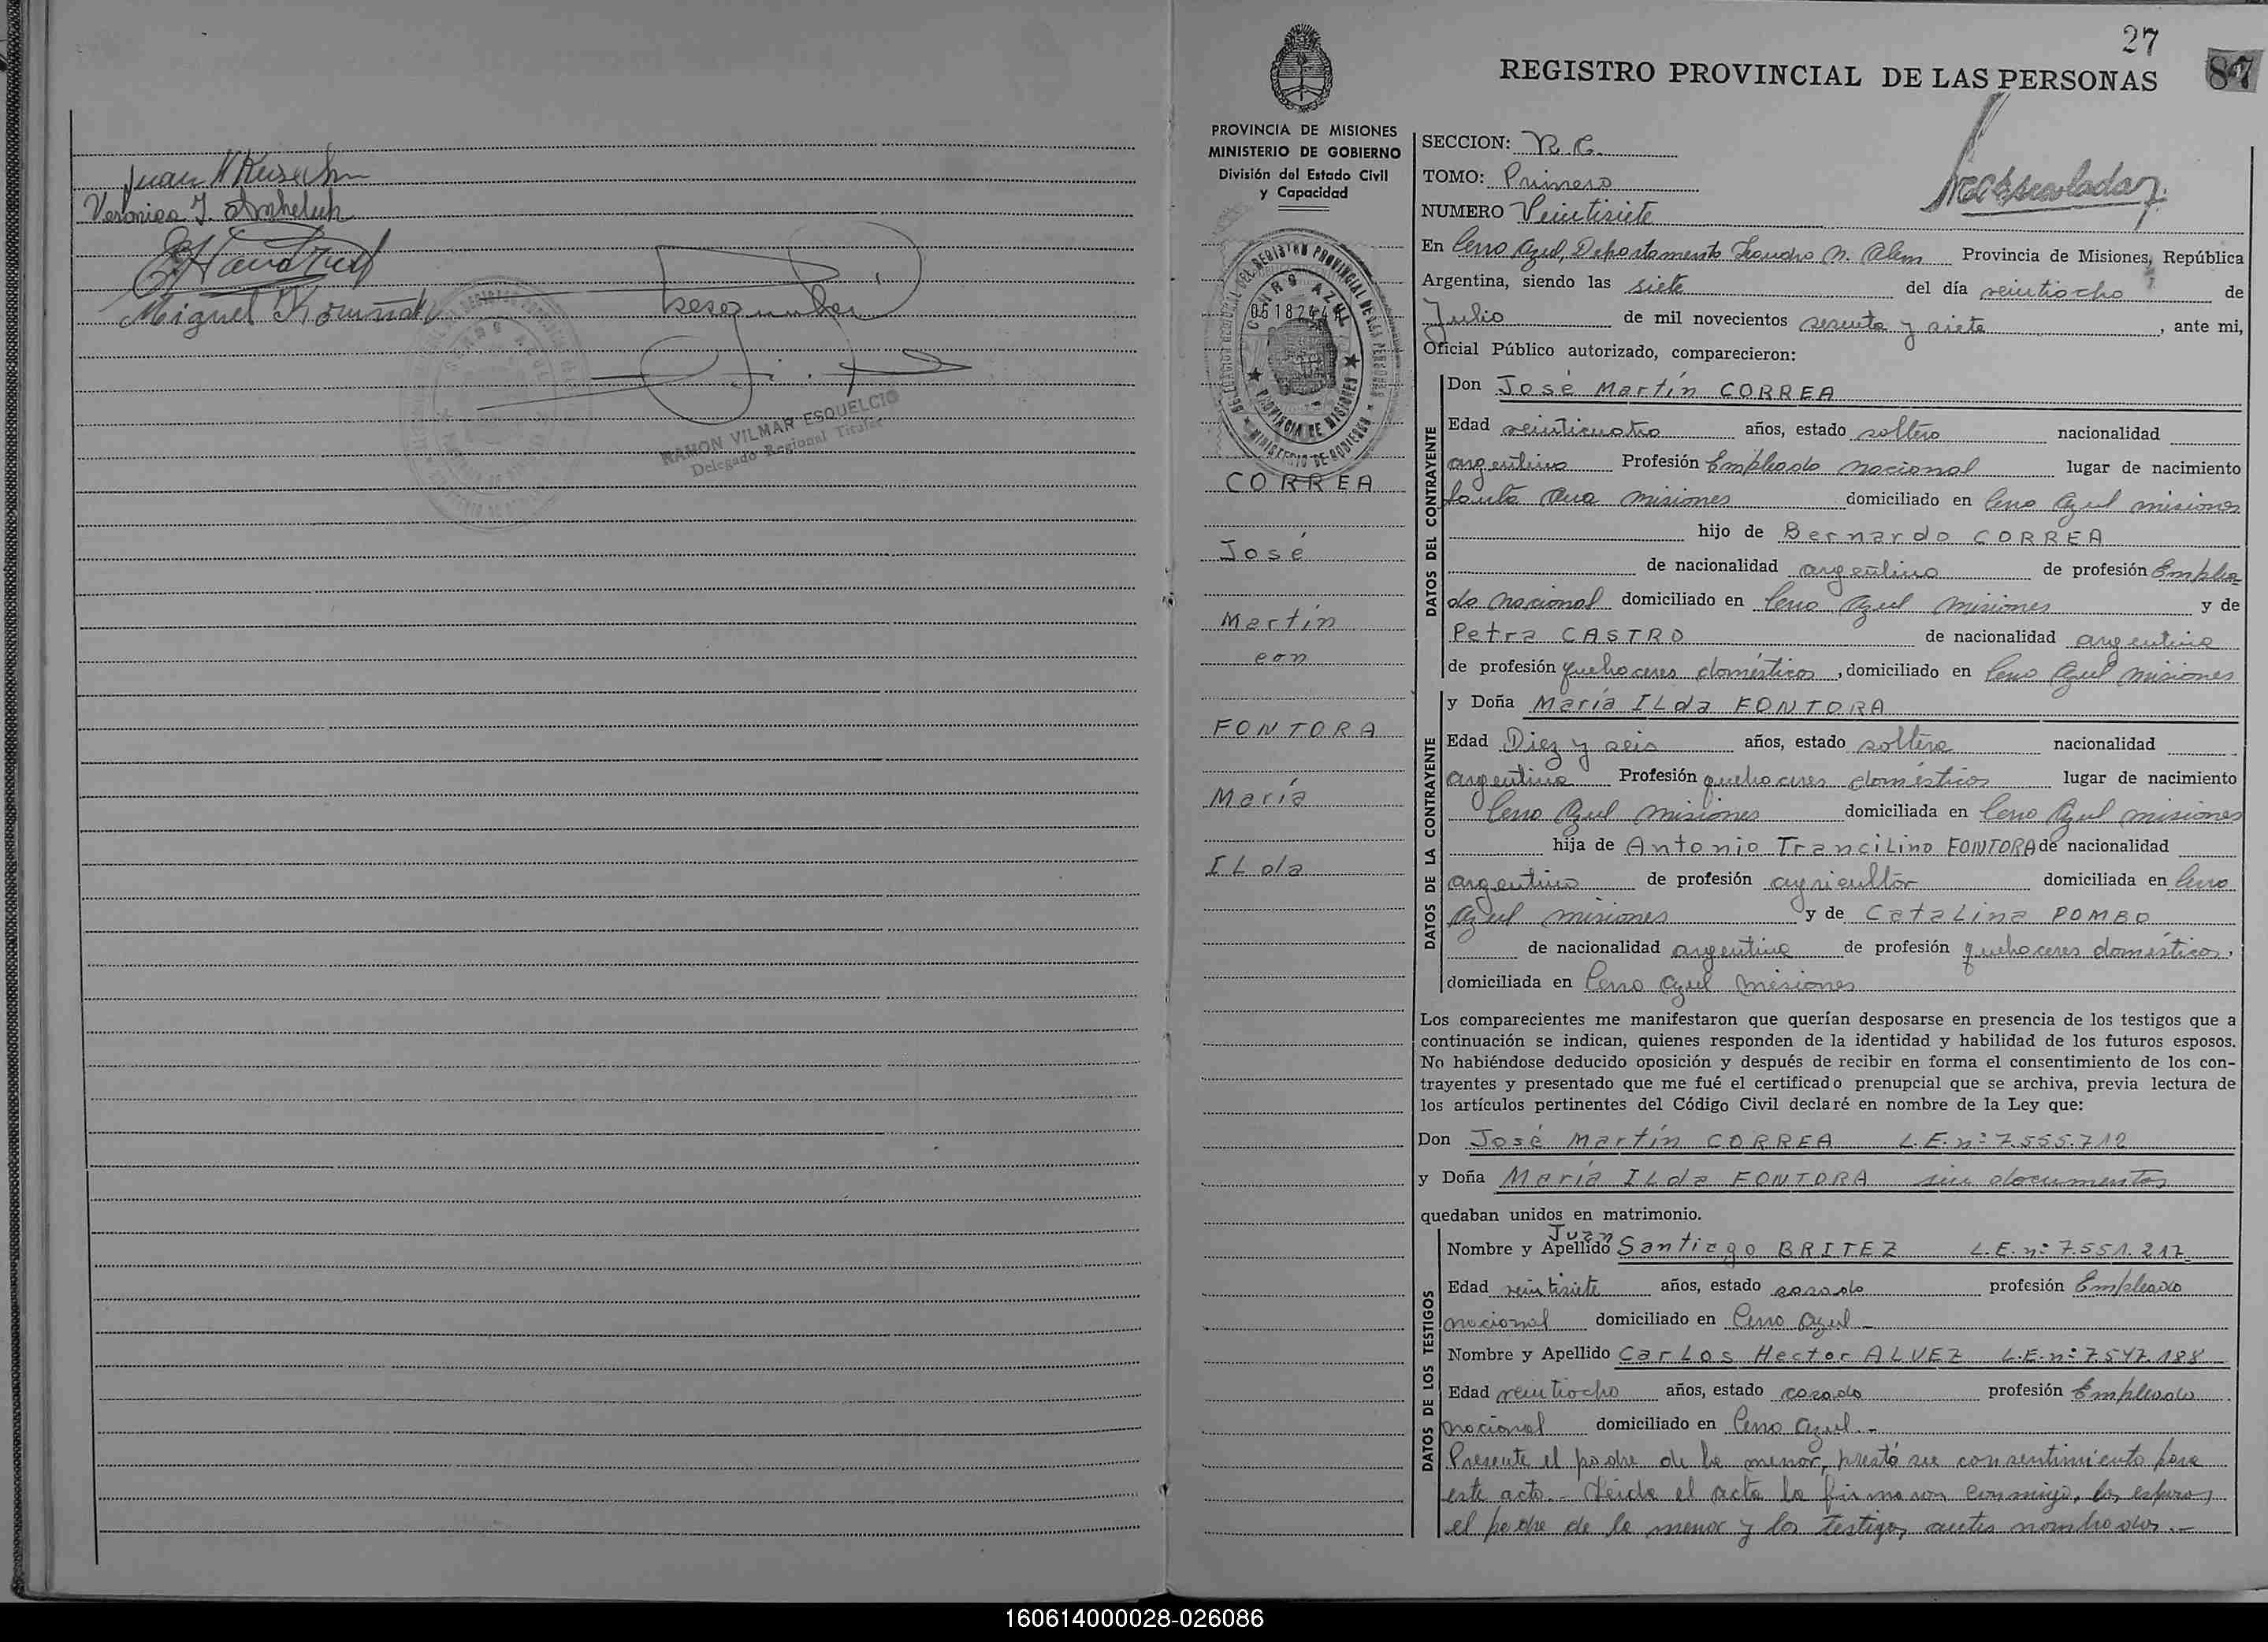 Juan
Veronica J.
Miguel
RAMON VILMAR ESQUELCIO
Delegado Regional Titular
27
87
REGISTRO PROVINCIAL DE LAS PERSONAS
PROVINCIA DE MISIONES
MINISTERIO DE GOBIERNO
División del Estado Civil
y Capacidad
CERRO AZUL
PROVINCIA DE MISIONES
CORREA
José
Martín
con
FONTORA
María
ILda
SECCION: R. C.
TOMO: Primero
NUMERO Veintisiete
En Cerro Azul, Departamento Leandro N. Alem Provincia de Misiones, República
Argentina, siendo las siete del día veintiocho de
Julio de mil novecientos sesenta y siete, ante mi,
Oficial Público autorizado, comparecieron:
DATOS DEL CONTRAYENTE
Don José Martín CORREA
Edad veinticuatro años, estado soltero nacionalidad
argentino Profesión Empleado nacional lugar de nacimiento
Santa Ana Misiones domiciliado en Cerro Azul Misiones
hijo de Bernardo CORREA
de nacionalidad argentino de profesión Emplea-
do nacional domiciliado en Cerro Azul Misiones y de
Petra CASTRO de nacionalidad argentina
de profesión quehaceres domésticos, domiciliado en Cerro Azul Misiones
DATOS DE LA CONTRAYENTE
y Doña María ILda FONTORA
Edad Diez y seis años, estado soltera nacionalidad
argentina Profesión quehaceres domésticos lugar de nacimiento
Cerro Azul Misiones domiciliada en Cerro Azul misiones
hija de Antonio TranciLino FONTORA de nacionalidad
argentino de profesión agricultor domiciliada en Cerro
Azul misiones y de CataLina POMBO
de nacionalidad argentina de profesión quehaceres domésticos,
domiciliada en Cerro Azul Misiones
Los comparecientes me manifestaron que querían desposarse en presencia de los testigos que a
continuación se indican, quienes responden de la identidad y habilidad de los futuros esposos.
No habiéndose deducido oposición y después de recibir en forma el consentimiento de los con-
trayentes y presentado que me fué el certificado prenupcial que se archiva, previa lectura de
los artículos pertinentes del Código Civil declaré en nombre de la Ley que:
Don José Martín CORREA L.E. nº 7.555.712
y Doña María ILda FONTORA sin documentos
quedaban unidos en matrimonio.
DATOS DE LOS TESTIGOS
Juan
Nombre y Apellido Santiago BRITEZ L.E. nº 7.551.217
Edad veintisiete años, estado casado profesión Empleado
nacional domiciliado en Cerro Azul-
Nombre y Apellido CarLos Hector ALVEZ L.E. nº 7.547.188
Edad veintiocho años, estado casado profesión Empleado
nacional domiciliado en Cerro Azul.-
Presente el padre de la menor, prestó su consentimiento para
este acto.- Leida el acta la firmaron conmigo, los esposos,
el padre de la menor y los testigos antes nombrados.-
160614000028-026086